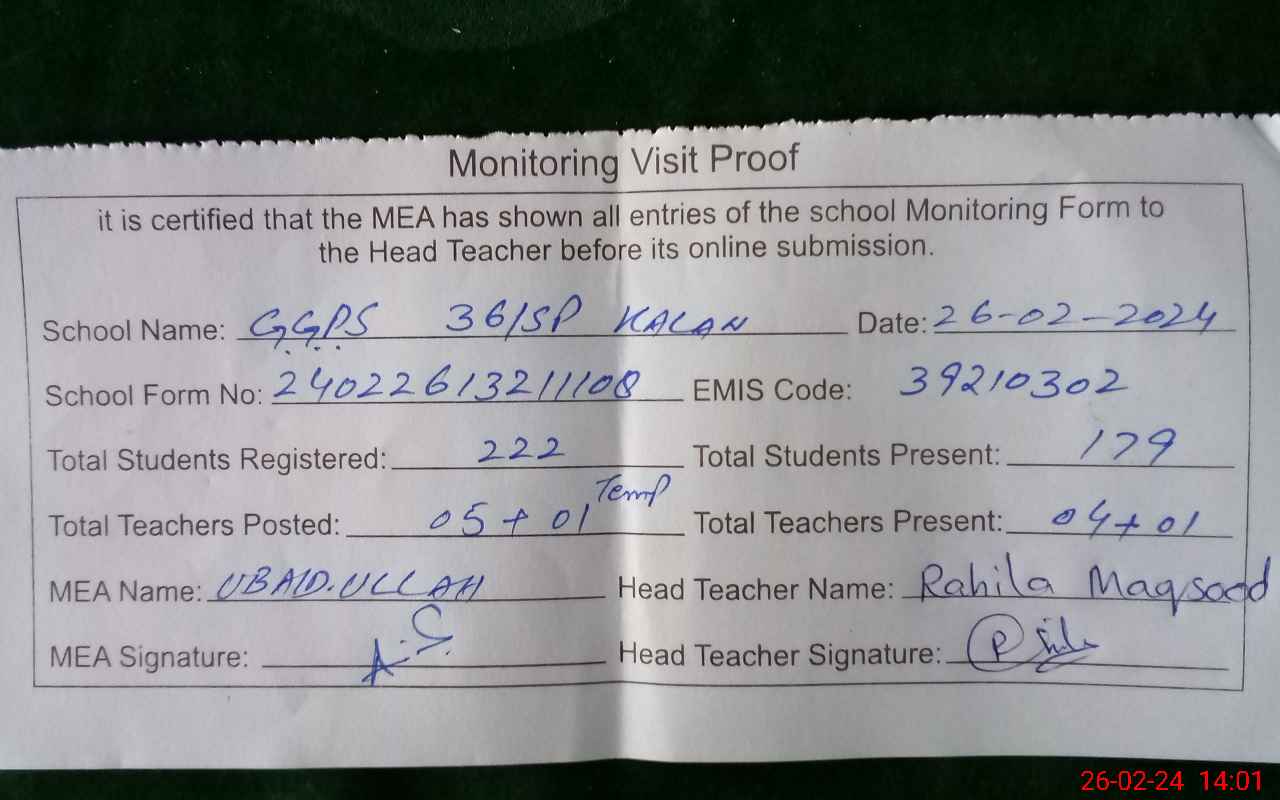 Monitoring Visit Proof
it is certified that the MEA has shown all entries of the school Monitoring Form to
the Head Teacher before its online submission.
School Name: GGPS 36/SP KALAN Date: 26-02-2024
School Form No: 24022613211108 EMIS Code: 39210302
Total Students Registered: 222 Total Students Present: 179
Total Teachers Posted: 05 + 01 Temp Total Teachers Present: 04 + 01
MEA Name: UBAID.ULLAH Head Teacher Name: Rahila Maqsood
MEA Signature: Head Teacher Signature:
26-02-24 14:01